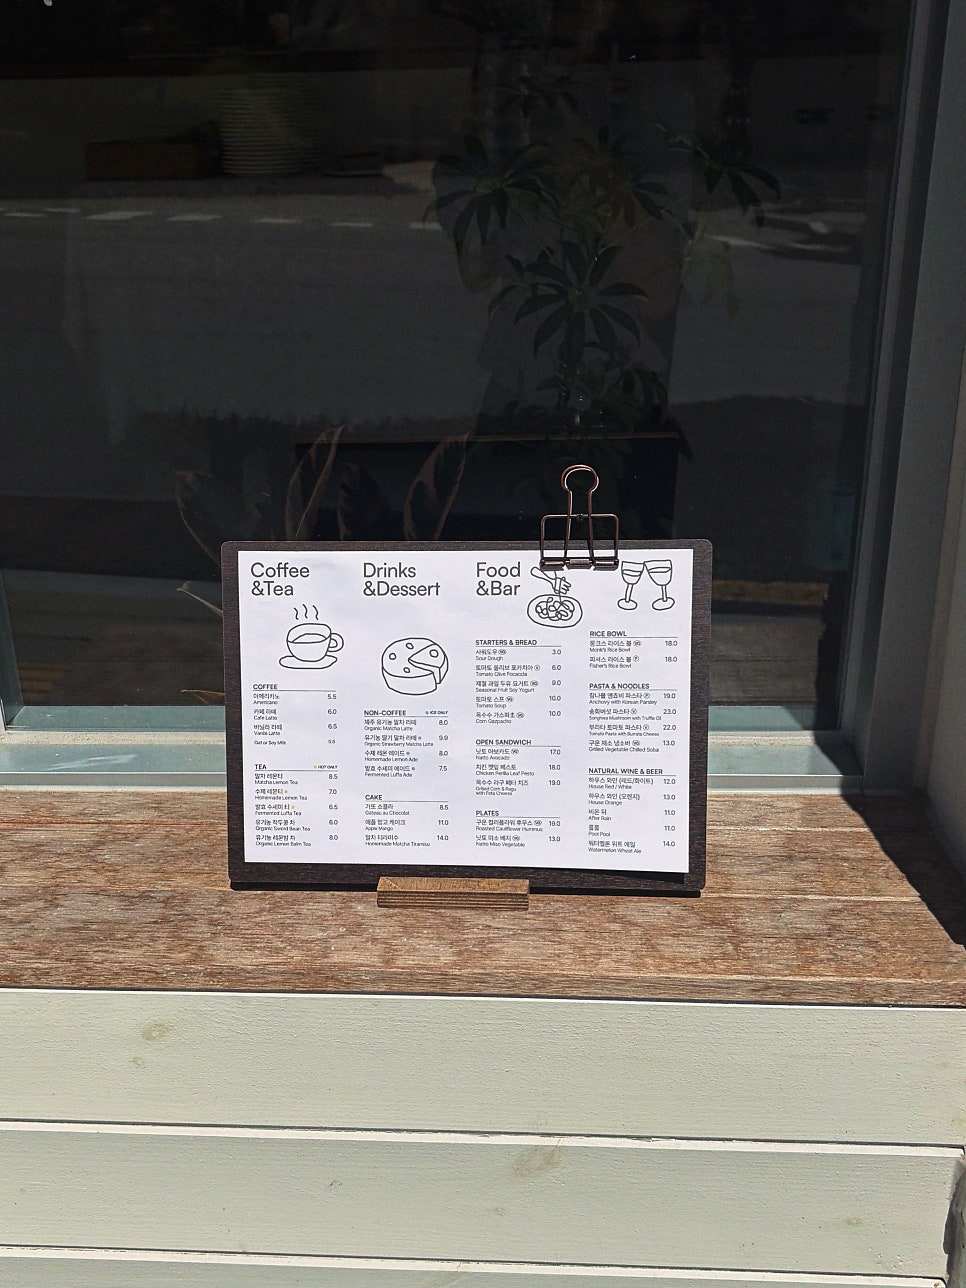 Coffee
&Tea
COFFEE
아메리카노 5.5
Americano
카페 라떼 6.0
Cafe Latte
바닐라 라떼 6.5
Vanilla Latte
Oat or Soy Milk 0.5
TEA HOT ONLY
말차 레몬티 8.5
Matcha Lemon Tea
수제 레몬티 7.0
Homemade Lemon Tea
발효 수세미 티 6.5
Fermented Luffa Tea
유기농 작두콩 차 6.0
Organic Sword Bean Tea
유기농 레몬밤 차 8.0
Organic Lemon Balm Tea
Drinks
&Dessert
NON-COFFEE ICE ONLY
제주 유기농 말차 라떼 8.0
Organic Matcha Latte
유기농 딸기 말차 라떼 9.9
Organic Strawberry Matcha Latte
수제 레몬 에이드 8.0
Homemade Lemon Ade
발효 수세미 에이드 7.5
Fermented Luffa Ade
CAKE
가또 쇼콜라 8.5
Gateau au Chocolat
애플 망고 케이크 11.0
Apple Mango
말차 티라미수 14.0
Homemade Matcha Tiramisu
Food
&Bar
STARTERS & BREAD
사워도우 VG 3.0
Sour Dough
토마토 올리브 포카치아 V 6.0
Tomato Olive Focaccia
제철 과일 두유 요거트 VG 9.0
Seasonal Fruit Soy Yogurt
토마토 스프 VG 10.0
Tomato Soup
옥수수 가스파초 VG 10.0
Corn Gazpacho
OPEN SANDWICH
낫토 아보카도 VG 17.0
Natto Avocado
치킨 깻잎 페스토 18.0
Chicken Perilla Leaf Pesto
옥수수 라구 페타 치즈 19.0
Grilled Corn & Ragu
with Feta Cheese
PLATES
구운 컬리플라워 후무스 VG 19.0
Roasted Cauliflower Hummus
낫토 미소 베지 VG 13.0
Natto Miso Vegetable
RICE BOWL
몽크스 라이스 볼 VG 18.0
Monk's Rice Bowl
피셔스 라이스 볼 P 18.0
Fisher's Rice Bowl
PASTA & NOODLES
참나물 앤쵸비 파스타 P 19.0
Anchovy with Korean Parsley
송화버섯 파스타 V 23.0
Sunghwa Mushroom with Truffle Oil
부라타 토마토 파스타 V 22.0
Tomato Pasta with Burrata Cheese
구운 채소 냉소바 VG 13.0
Grilled Vegetable Chilled Soba
NATURAL WINE & BEER
하우스 와인 (레드/화이트) 12.0
House Red / White
하우스 와인 (오렌지) 13.0
House Orange
비온 뒤 11.0
After Rain
풀풀 11.0
Pool Pool
워터멜론 위트 에일 14.0
Watermelon Wheat Ale